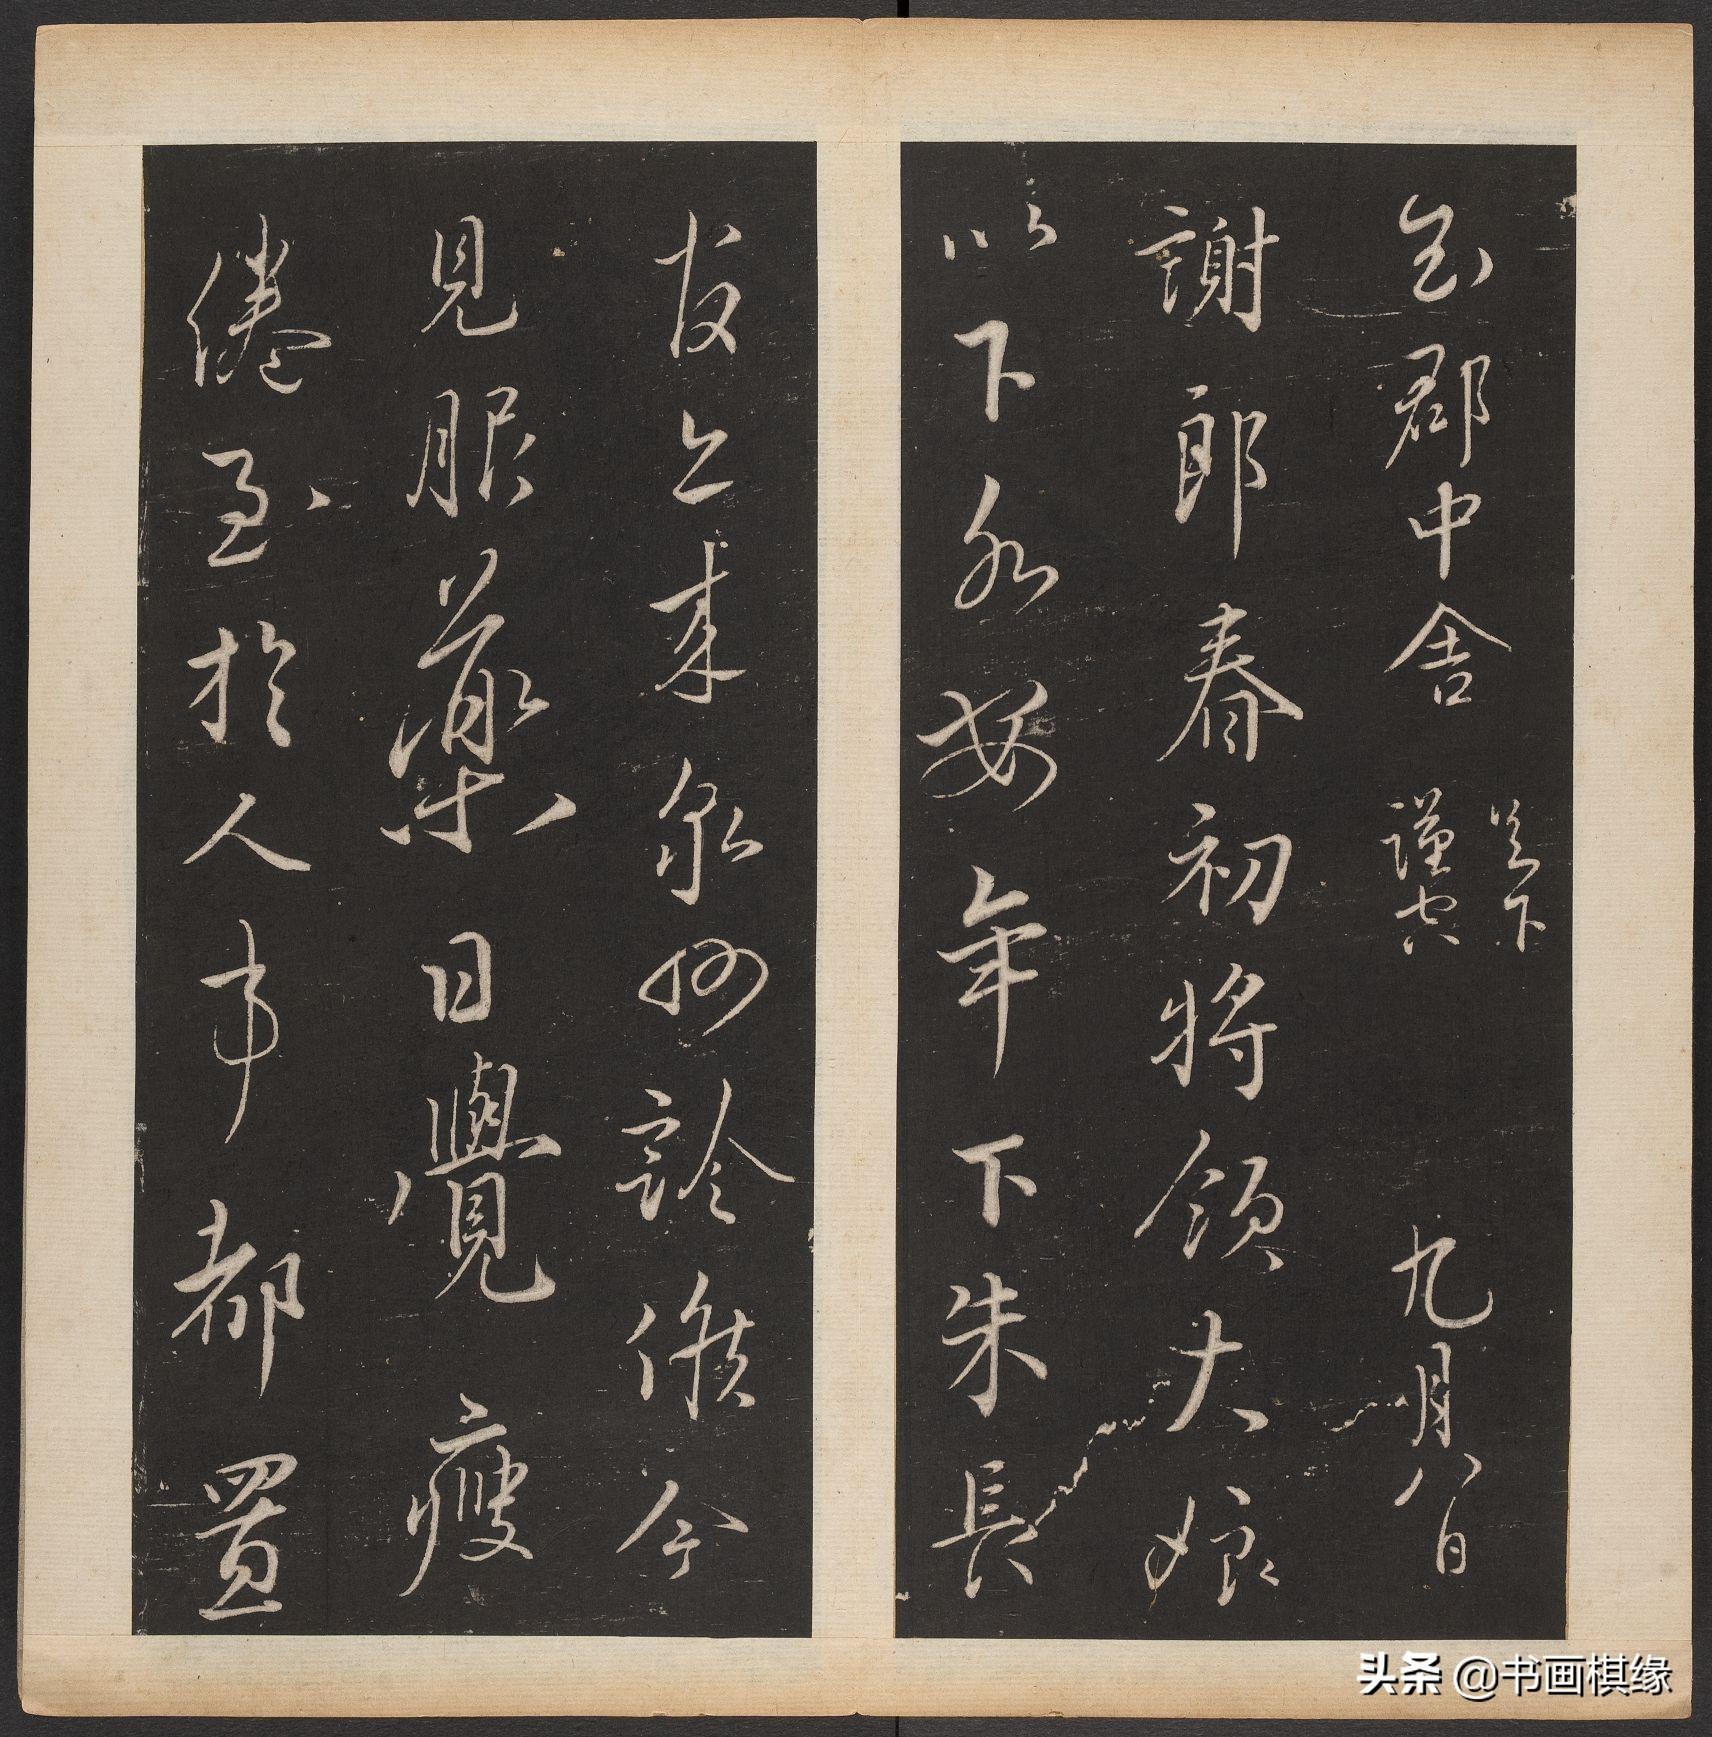 郡中舍 足下 謹空 九月八日
謝郎春初將領大娘
以下各安年下朱長
友來泉州診候今
見服藥日覺瘦
倦至於人事都置
头条 @书画棋缘